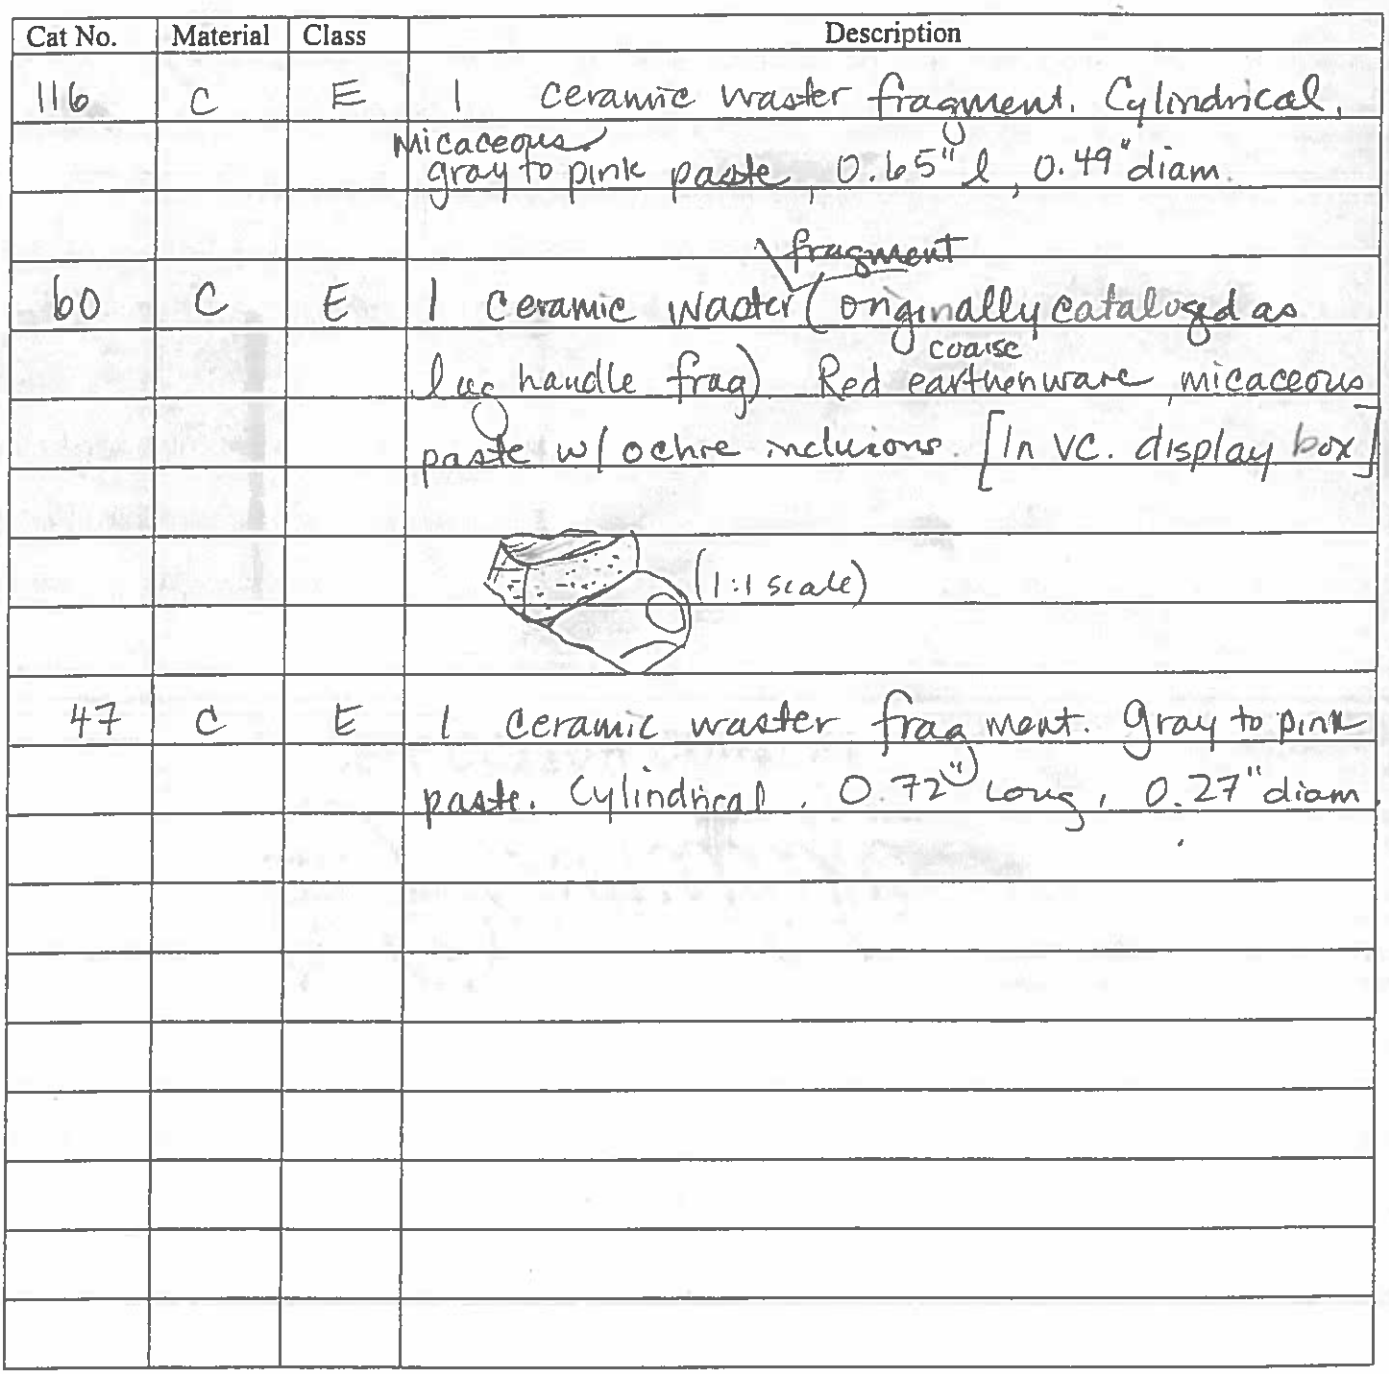 Cat No. Material Class Description
116 C E 1 Ceramic waster fragment. Cylindrical,
Micaceous
gray to pink paste, 0.65" l, 0.49" diam.
fragment
60 C E 1 Ceramic waster (originally cataloged as
coarse
lug handle frag) Red earthenware, micaceous
paste w/ ochre inclusions. [In VC. display box]
(1:1 scale)
47 C E 1 Ceramic waster fragment. Gray to pink
paste. Cylindrical, 0.72" long, 0.27" diam.